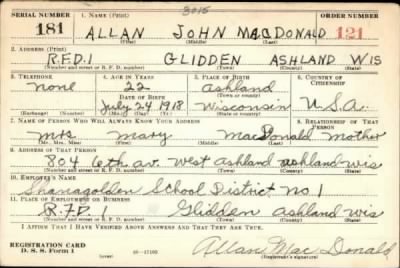 3015
SERIAL NUMBER 1. NAME (Print) ORDER NUMBER
181 ALLAN JOHN MACDONALD 121
(First) (Middle) (Last)
2. ADDRESS (Print)
R.F.D.1 GLIDDEN ASHLAND WIS
(Number and street or R. F. D. number) (Town) (County) (State)
3. TELEPHONE 4. AGE IN YEARS 5. PLACE OF BIRTH 6. COUNTRY OF CITIZENSHIP
none 22 Ashland
DATE OF BIRTH (Town or county)
July 24 1918 Wisconsin U.S.A.
(Exchange) (Number) (Mo.) (Day) (Yr.) (State or country)
7. NAME OF PERSON WHO WILL ALWAYS KNOW YOUR ADDRESS 8. RELATIONSHIP OF THAT PERSON
Mrs. Mary MacDonald Mother
(Mr., Mrs., Miss) (First) (Middle) (Last)
9. ADDRESS OF THAT PERSON
804 6th av. West Ashland Ashland Wis
(Number and street or R. F. D. number) (Town) (County) (State)
10. EMPLOYER'S NAME
Shanagolden School District No. 1
11. PLACE OF EMPLOYMENT OR BUSINESS
R.F.D 1 Glidden Ashland Wis
(Number and street or R. F. D. number) (Town) (County) (State)
I AFFIRM THAT I HAVE VERIFIED ABOVE ANSWERS AND THAT THEY ARE TRUE.
REGISTRATION CARD
D. S. S. Form 1 16—17105 Allan MacDonald
(Registrant's signature)